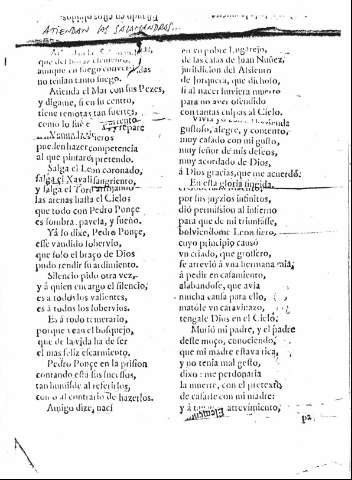 ATIENDAN LAS SALAMANDRAS...
aunque en fuego
no tenian tanto fuego.
Atienda el Mar con sus Pezes,
y digame, si en su centro,
tiene remotas tan fuertes,
como lo fue
pueden hazer competencia
al que pintaros pretendo.
Salga el Leon coronado,
salga el Xavali sangriento,
y salga el Toro
las arenas hasta el Cielos
que todo con Pedro Ponçe
es sombra, pavela, y sueño.
Yà lo dixe, Pedro Ponçe,
esse vandido sobervio,
que solo el braço de Dios
pudo rendir su ardimiento.
Silencio pido otra vez,
y à quien encargo el silencio,
es à todos los valientes,
es à todos los sobervios.
Es à todo temerario,
porque vean el bosquejo,
que de la vida ha de ser
el mas feliz escarmiento.
Pedro Ponçe en la prision
contando està sus sucessos,
tan humilde al referirlos,
como al contrario de hazerlos.
Amigo dize, naci
en un pobre Lugarejo,
de las casas de Juan Nuñez,
jurisdicion del Assiento
de Jorquera, que dichoso,
si al nacer huviera muerto
para no aver ofendido
con tantas culpas al Cielo.
Vivia yo
gustoso, alegre, y contento,
muy casado con mi gusto,
muy señor de mis deseos,
muy acordado de Dios,
à Dios gracias, que me acuerdo.
En esta gloria fingida,
por sus juyzios infinitos,
diò permission al infierno
para que de mi triumfasse,
bolviendome Leon fiero,
cuyo principio causò
un criado, que grossero,
se atreviò à una hermana mia,
à pedir en casamiento,
alabandose, que avia
mucha causa para ello,
matòle un caravinazo,
tengale Dios en el Cielo.
Muriò mi padre, y el padre
deste moço, conociendo,
que mi madre estava rica,
y no tenia mal gesto,
dixo: me perdonaria
la muerte, con el pretexto
de casarse con mi madre:
y à atrevimiento,